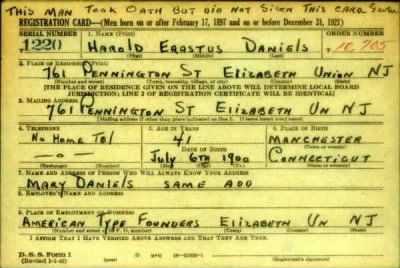 THIS MAN TOOK OATH BUT DID NOT SIGN THIS CARD
REGISTRATION CARD—(Men born on or after February 17, 1897 and on or before December 31, 1921)
SERIAL NUMBER 1. NAME (Print) ORDER NUMBER
1220 Harold Erastus Daniels 10,705
2. PLACE OF RESIDENCE (Print)
761 Pennington St Elizabeth Union NJ
(Number and street) (Town, township, village, or city) (County) (State)
[THE PLACE OF RESIDENCE GIVEN ON THE LINE ABOVE WILL DETERMINE LOCAL BOARD
JURISDICTION; LINE 2 OF REGISTRATION CERTIFICATE WILL BE IDENTICAL]
3. MAILING ADDRESS
761 Pennington St Elizabeth Un NJ
[Mailing address if other than place indicated on line 2. If same insert word same]
4. TELEPHONE 5. AGE IN YEARS 6. PLACE OF BIRTH
No Home Tel 41 MANCHESTER
DATE OF BIRTH (Town or county)
— o — July 6th 1900 Connecticut
(Mo.) (Day) (Yr.) (State or country)
7. NAME AND ADDRESS OF PERSON WHO WILL ALWAYS KNOW YOUR ADDRESS
Mary Daniels SAME ADD
8. EMPLOYER'S NAME AND ADDRESS
9. PLACE OF EMPLOYMENT OR BUSINESS
American Type Founders Elizabeth Un NJ
(Number and street or R. F. D. number) (Town) (County) (State)
I AFFIRM THAT I HAVE VERIFIED ABOVE ANSWERS AND THAT THEY ARE TRUE.
D. S. S. Form 1
(Revised 1-1-42) (Registrant's signature)